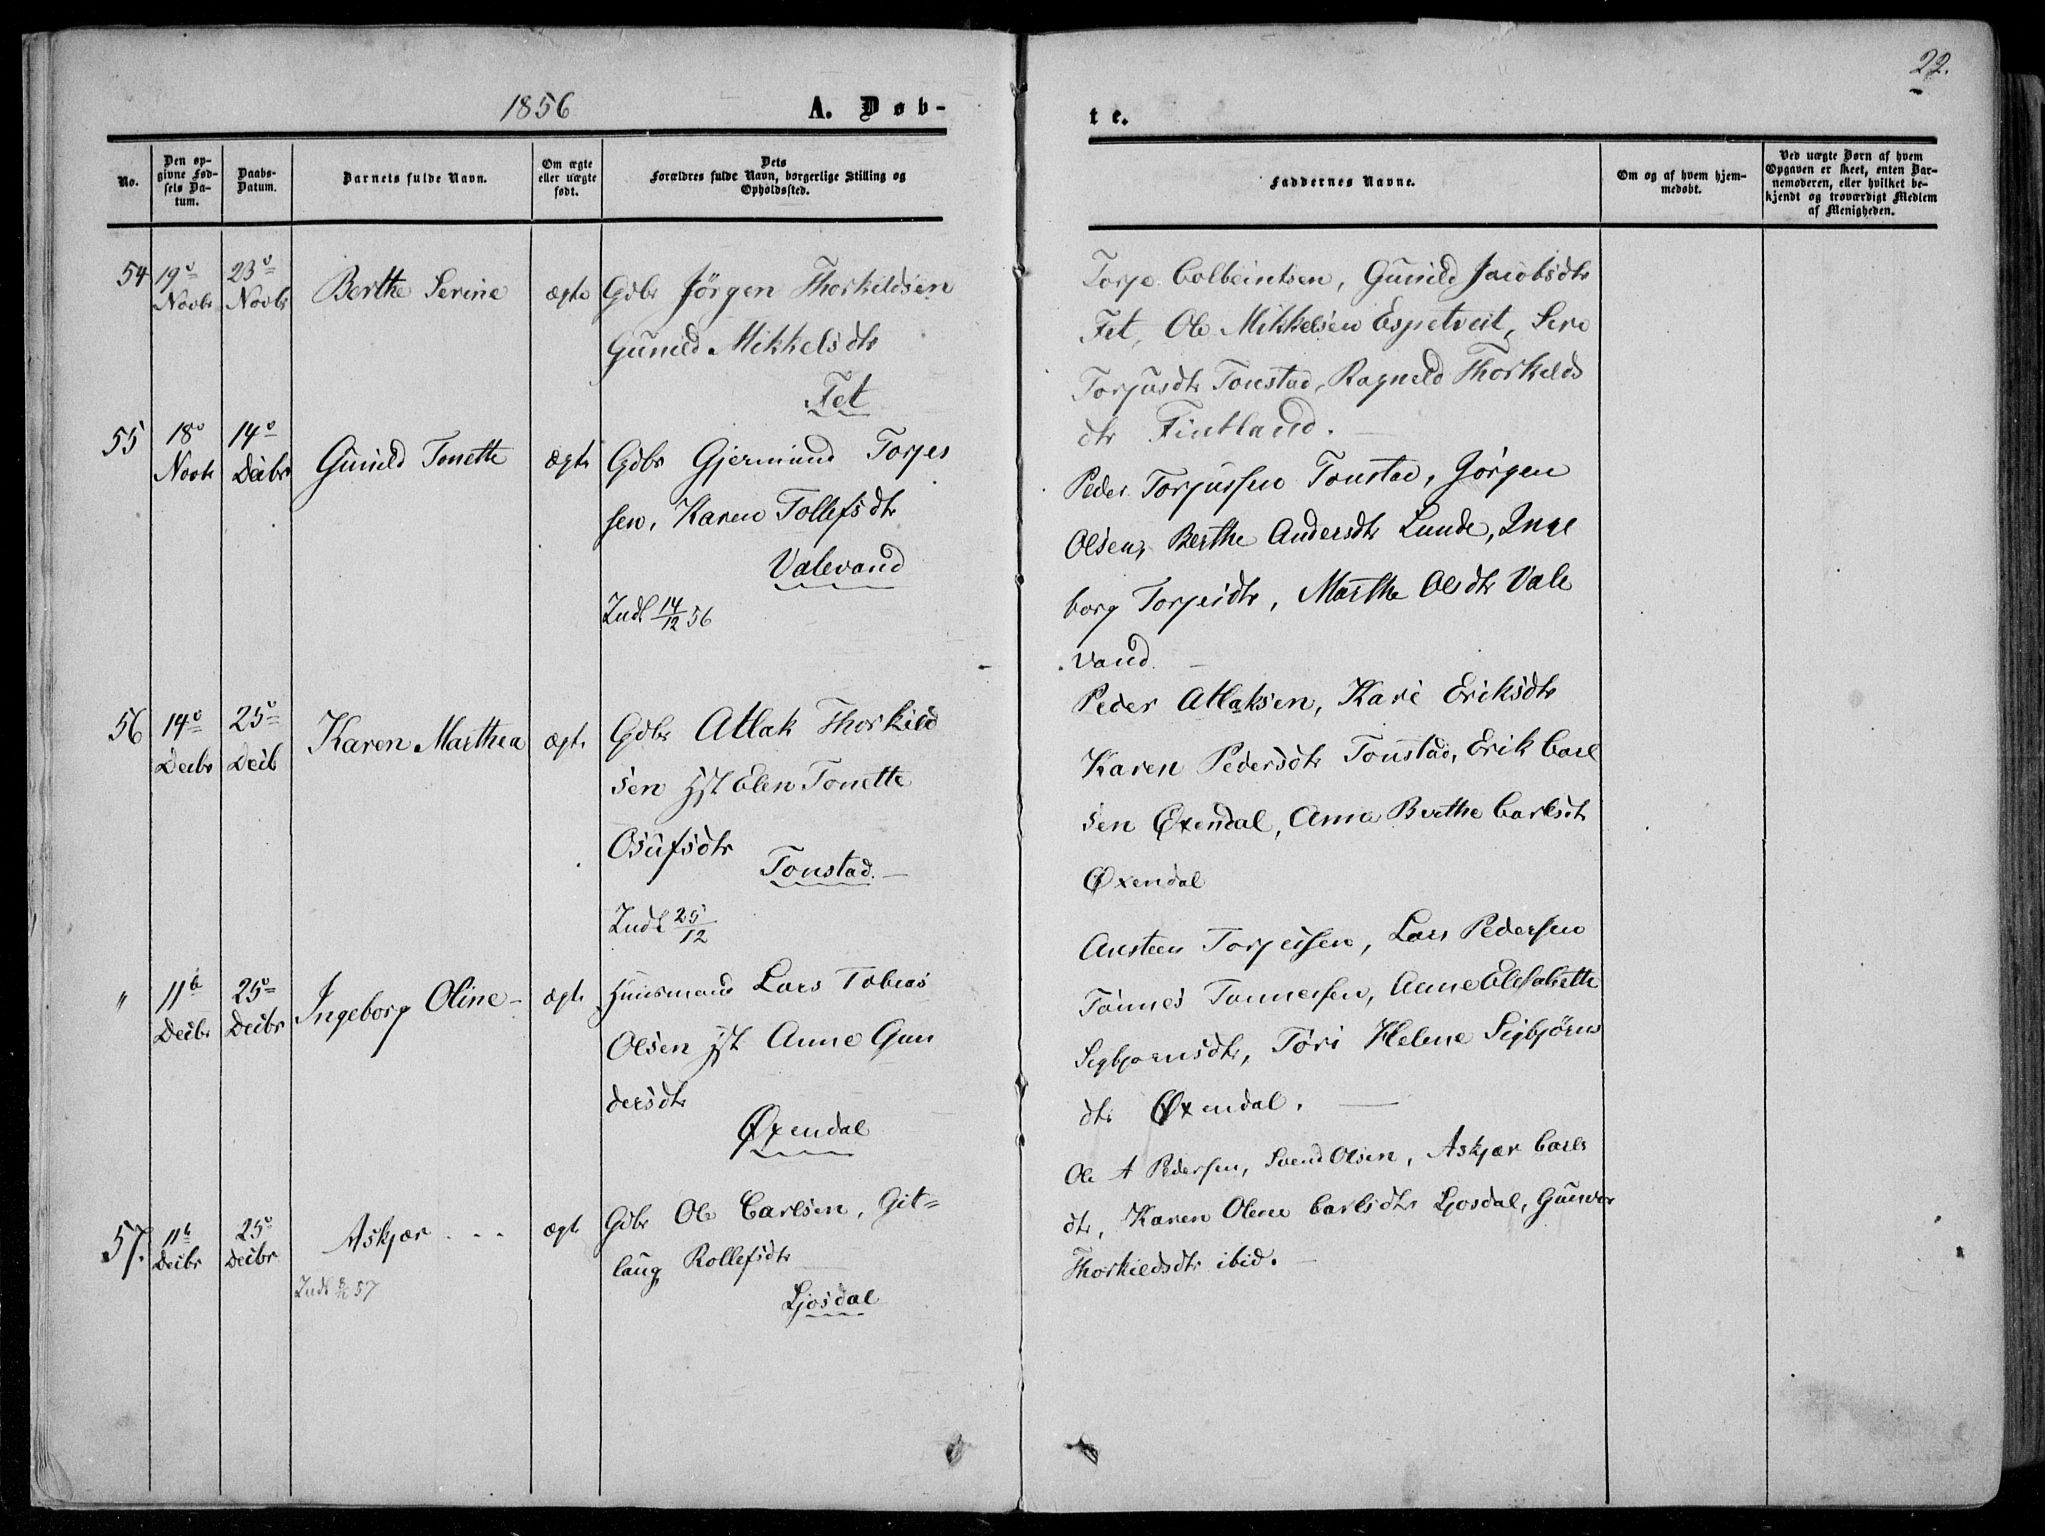 22.
1856 A. Døb-
te.
No.
Den op-
givne Fød-
sels Da-
tum.
Daabs-
Datum.
Barnets fulde Navn.
Om ægte
eller uægte
født.
Dets
Forældres fulde Navn, borgerlige Stilling og
Opholdssted.
Faddernes Navne.
Om og af hvem hjem-
medøbt.
Ved uægte Børn af hvem
Opgaven er skeet, enten Bar-
nemoderen, eller hvilket be-
kjendt og troværdigt Medlem
af Menigheden.
54 19de Novbr 23de Novbr Berthe Serine ægte Gdbr Jörgen Thorkildsen
Gunild Mikkelsdtr
Fet
Torje Colbeintsen, Gunild Jacobsdtr
Fet, Ole Mikkelsen Espetveit, Sire
Torjusdtr Tonstad, Ragneld Thorkilds
dtr Fintland.
55 18de Novbr 14de Decbr Gunild Tonette ægte Gdbr Gjermund Torjes
sen, Karen Tollefsdtr
Valevand
Indl 14/12 56
Peder Torjussen Tonstad, Jörgen
Olsen, Berthe Andersdtr Lunde, Inge
borg Torjesdtr, Marthe Olsdtr Vale
vand.
56 14de Decbr 25de Decb Karen Marthea ægte Gdbr Atlak Thorkild
sen Hst Elen Tonette
Osufsdtr
Tonstad.
Indl 25/12
Peder Atlaksen, Kari Eriksdtr
Karen Pedersdtr Tonstad, Erik Carl
sen Øxendal, Anna Berthe Carlsdtr
Øxendal
" 11te Decbr 25de Decbr Ingeborg Oline ægte Huusmand Lars Tobias
Olsen Hst Anne Gun
dersdtr
Øxendal
Austeen Torjeisen, Lars Pedersen
Tönnes Tönnesen, Anne Elisabette
Sigbjørnsdtr, Töri Helene Sigbjørns
dtr Øxendal.
57. 11te Decbr 25de Decbr Askjær ægte Gdbr Ole Carlsen, Git=
laug Rollefsdtr
Ljosdal
Indl 57
Ole A Pedersen, Svend Olsen, Askjær Carls
dtr, Karen Olene Carlsdtr Ljosdal, Gunvor
Thorkildsdtr ibid.